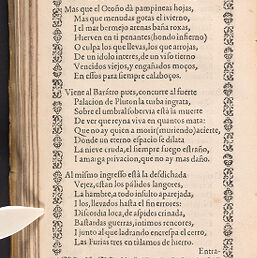 Mas que el Otoño dà pampinas hojas,
Mas que menudas gotas el ivierno,
I el mar bermejo arenas baña roxas,
Hierven en ti penantes (hondo infierno)
O culpa los que llevas, los que arrojas,
De un idolo interes, de un viso tierno
Vencidos viejos, y engañados moços,
En essos para siempre calaboços.
Viene al Baratro pues, concurre al fuerte
Palacion de Pluton la turba ingrata,
Sobre el umbral sobervia està la muerte
De ver que reyna viva en quantos mata:
Que no ay quien a morir (muriendo) acierte,
Donde un eterno espacio se dilata
La nieve cruda, el siempre fuego estraño,
I amarga privacion, que no ay mas daño.
Al mismo ingresso està la desdichada
Vejez, estan los palidos langores,
La hambre, a todo insulto aparejada,
I los, llevados hasta el fin errores:
Discordia loca, de aspides crinada,
Bastardas guerras, intimos rencores,
I junto al que ladrando encrespa el cerro,
Las Furias tres en talamos de hierro.
Entra-